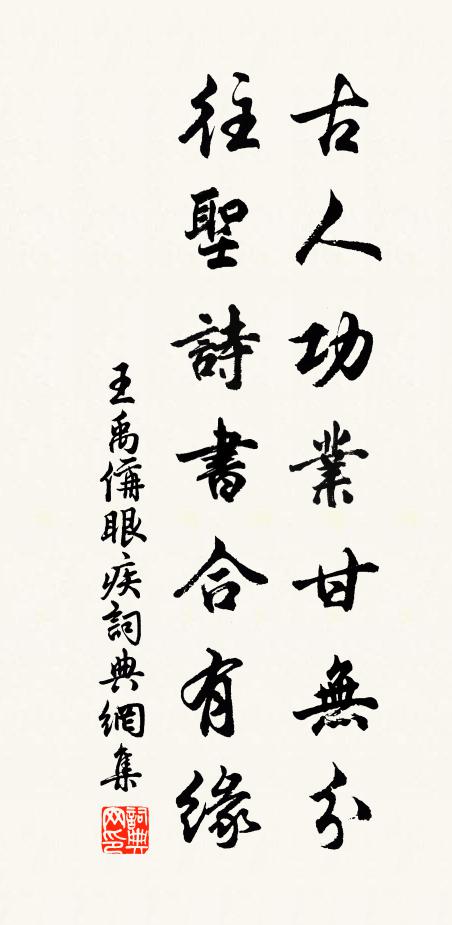 古人功業甘無分
往聖詩書合有緣
王禹偁眼疾詞典網集
詞典网印